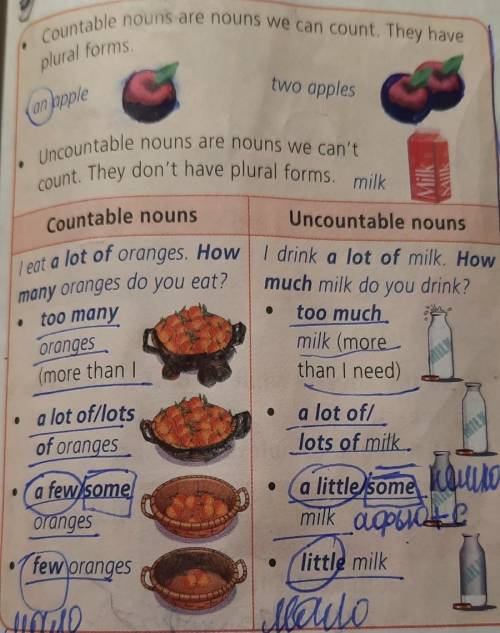 Countable nouns are nouns we can count. They have
plural forms.
an apple
two apples
Uncountable nouns are nouns we can't
count. They don't have plural forms.
milk
Milk
Milk
Countable nouns
Uncountable nouns
I eat a lot of oranges. How
many oranges do you eat?
I drink a lot of milk. How
much milk do you drink?
• too many
oranges
(more than I
• too much
milk (more
than I need)
MILK
• a lot of/lots
of oranges
• a lot of/
lots of milk
MILK
• a few/some
oranges
• a little/some
milk
• few oranges
• little milk
мало
мало